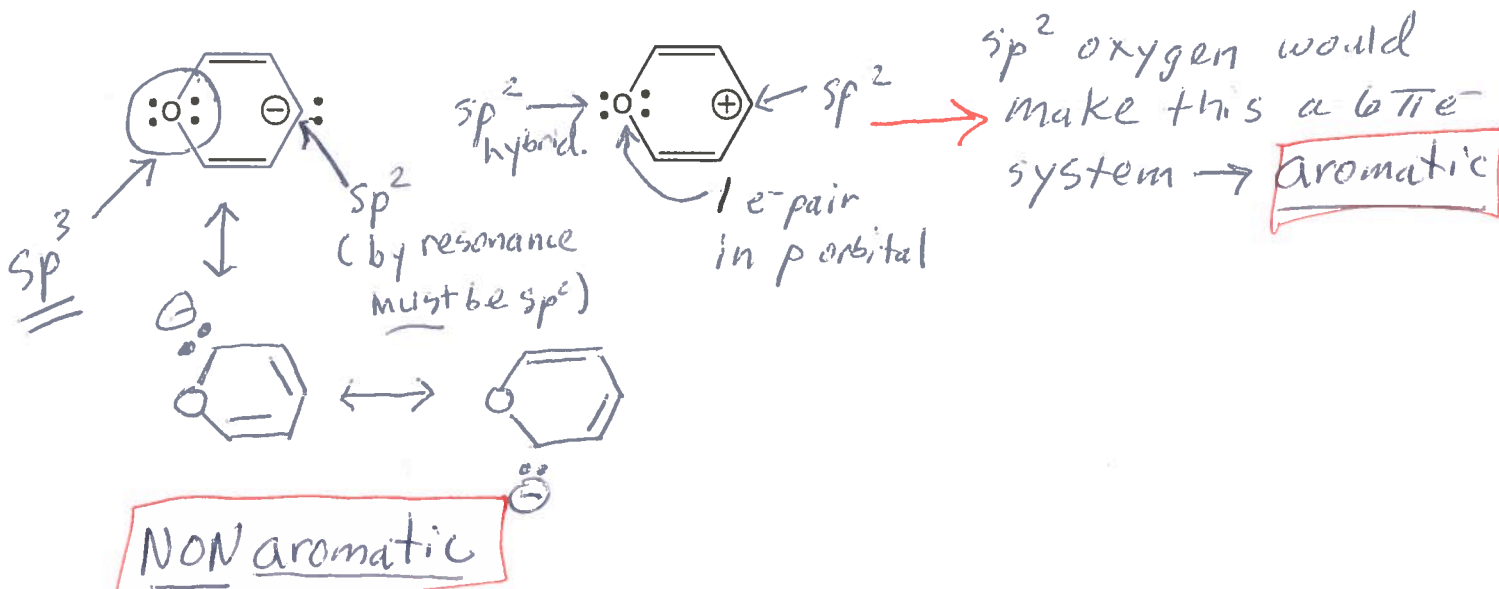 :O:
⊖:
sp³
sp²
(by resonance
must be sp²)
⊖
O
O
⊖
NON aromatic
sp²
hybrid.
:O:
⊕
sp²
1 e⁻ pair
in p orbital
sp² oxygen would
make this a 6πe⁻
system → aromatic